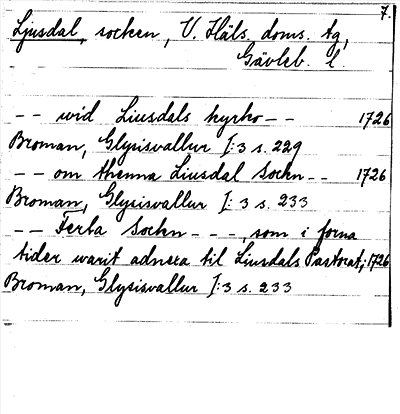 7.
Ljusdal, socken, V. Häls. doms. tg,
Gävleb. l.
-- wid Liusdals kyrko -- 1726
Broman, Glysisvallur I:3 s. 229
-- om thenna Liusdal Sockn -- 1726
Broman, Glysisvallur I: 3 s. 233
-- Ferla Sockn ---, som i forna
tider warit adnexa til Liusdals Pastorat; 1726
Broman, Glysisvallur I:3 s. 233